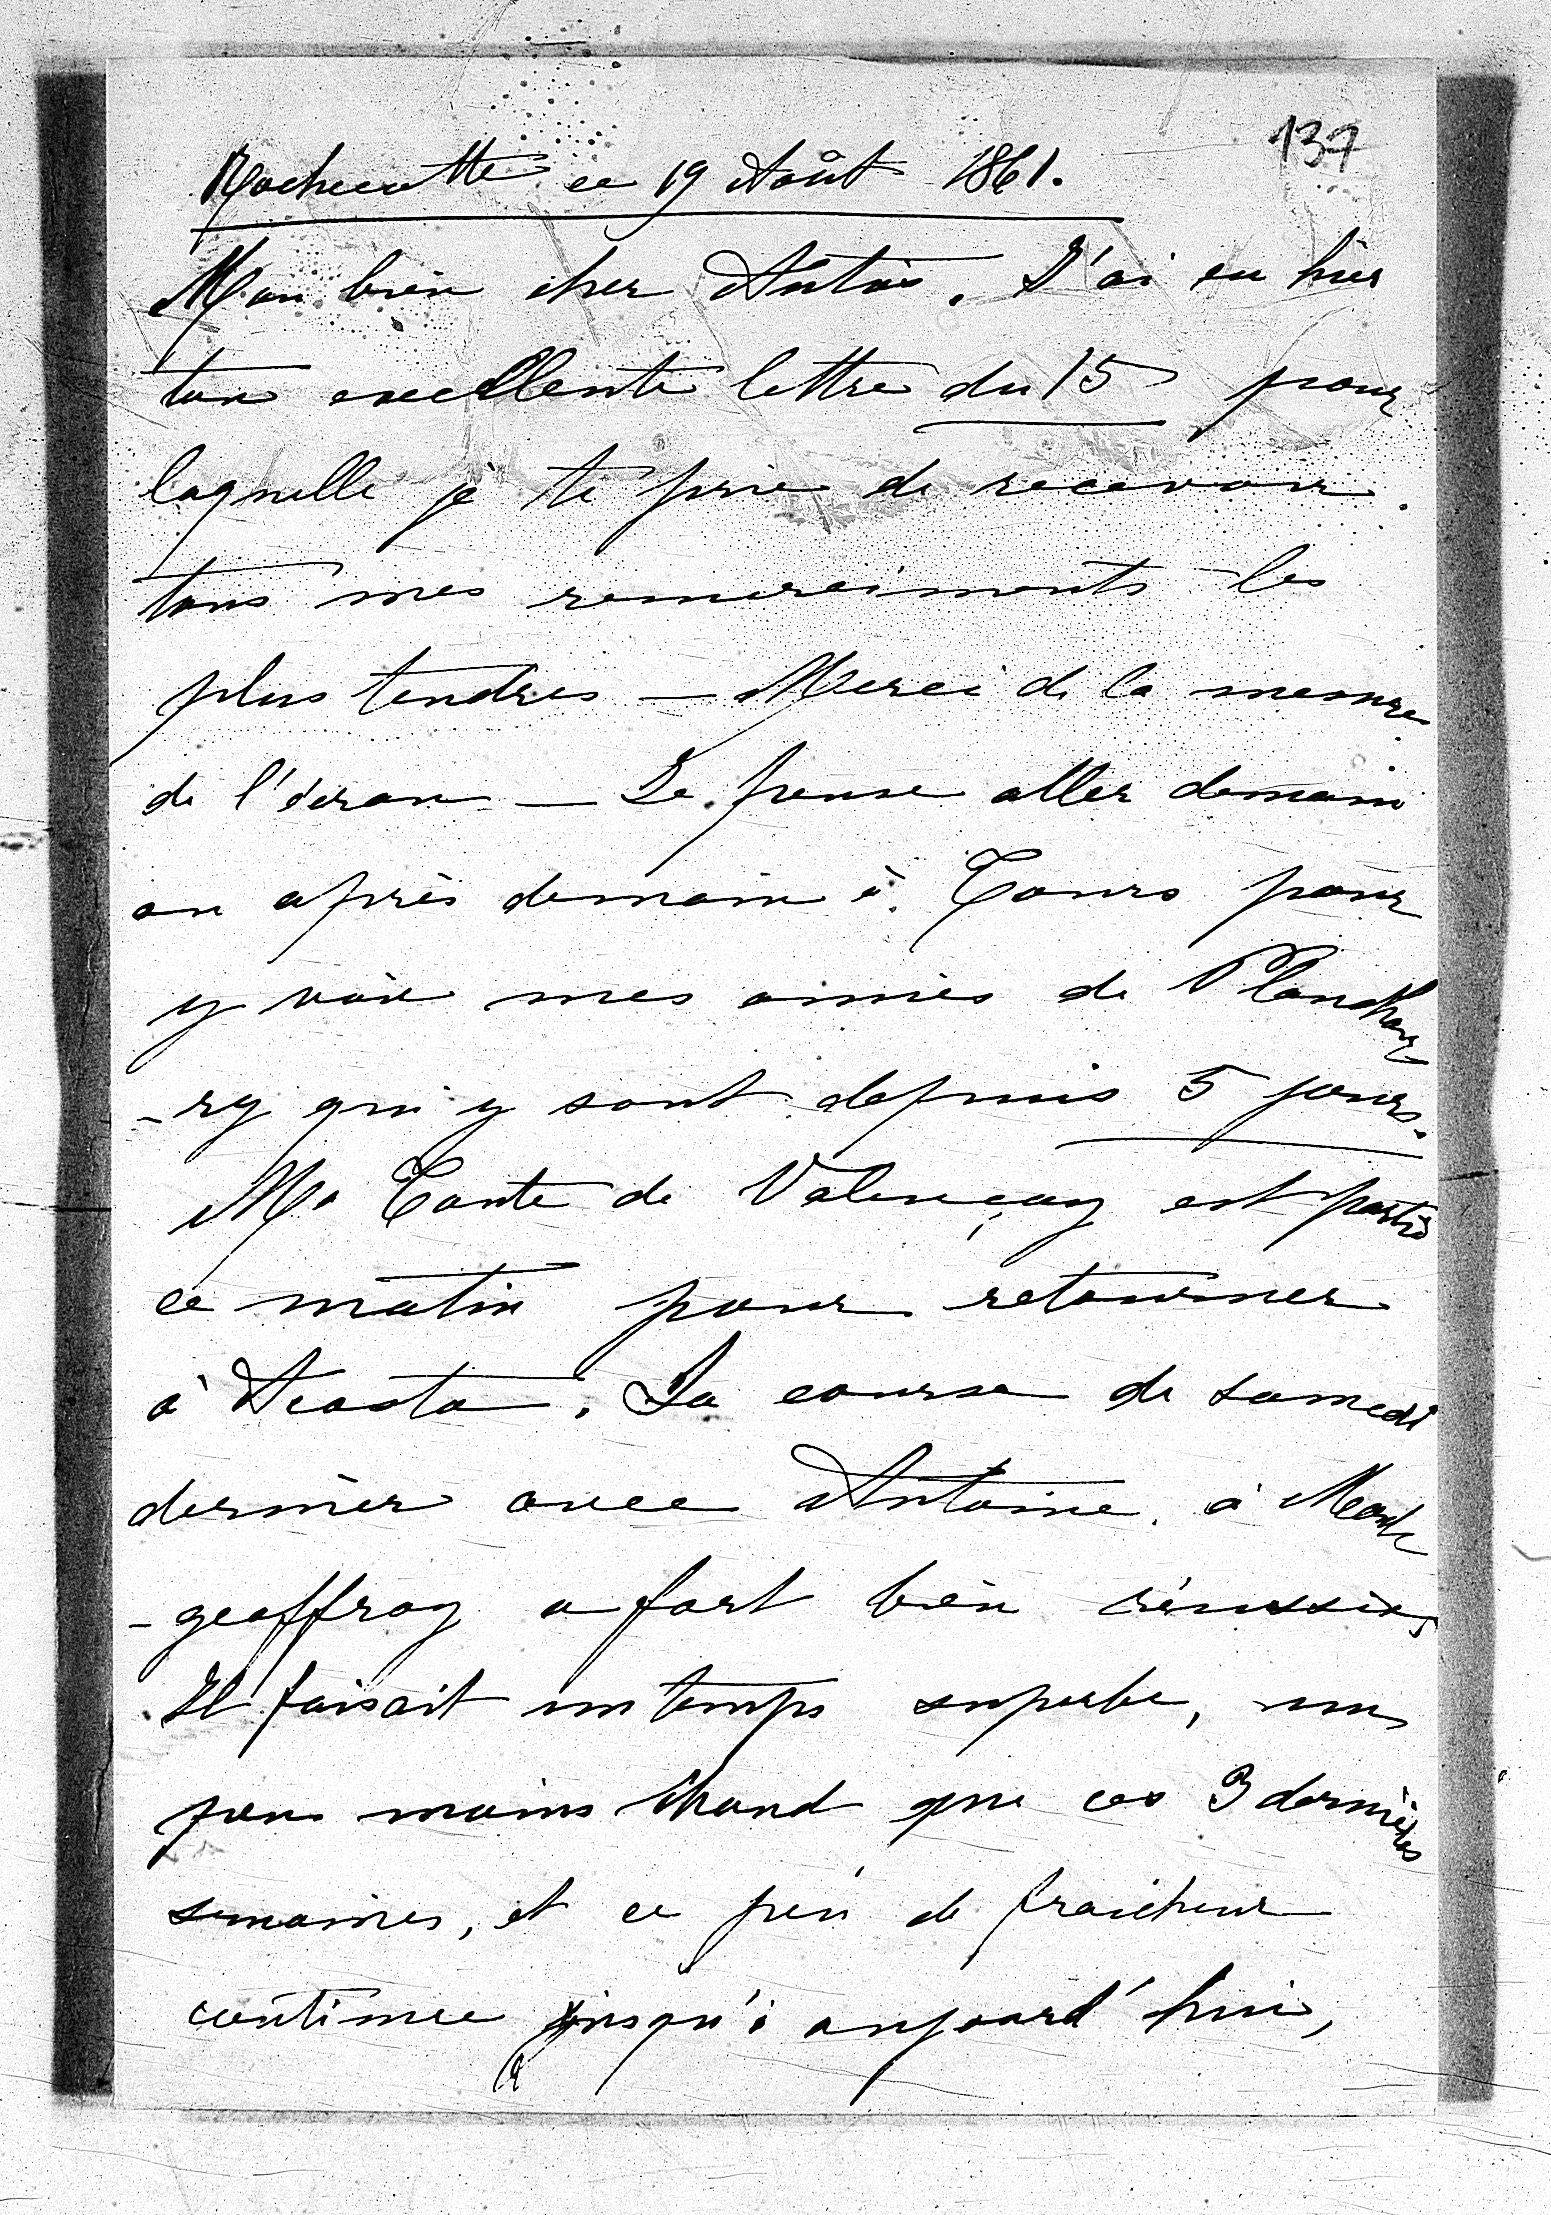 137
Rochecotte ce 19 Août 1861.
Mon bien cher Antoine. J'ai eu hier
ton excellente lettre du 15 pour
laquelle je te prie de recevoir
tous mes remerciments les
plus tendres — Merci de la mesure
de l'écran — Je pense aller demain
ou après demain à Tours pour
y voir mes amies de
-ry qui y sont depuis 5 jours.
Ma Tante de Valençay est partie
ce matin pour retourner
à . La course de samedi
dernier avec Antoine à Mont
-geoffroy a fort bien réussie,
Il faisait un temps superbe, un
peu moins chaud que ces 3 dernières
semaines, et ce peu de fraicheur
continue jusqu'à aujourd'hui,